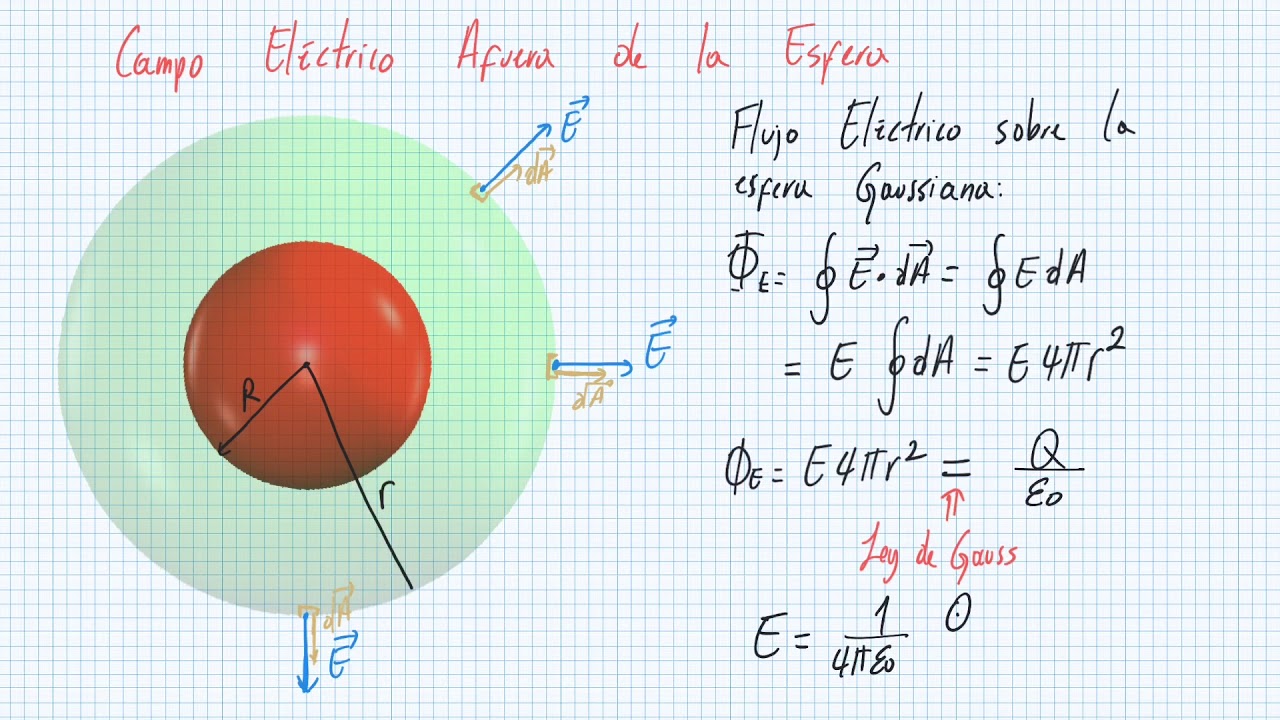 Campo Eléctrico Afuera de la Esfera
Flujo Eléctrico sobre la
esfera Gaussiana:
Φ_E = ∮ E⃗ · dA⃗ = ∮ E dA
= E ∮ dA = E 4πr²
ϕ_E = E 4πr² = Q/ε₀
⇑
Ley de Gauss
E = 1/4πε₀ Q
E⃗
dA⃗
E⃗
dA⃗
R
r
dA⃗
E⃗